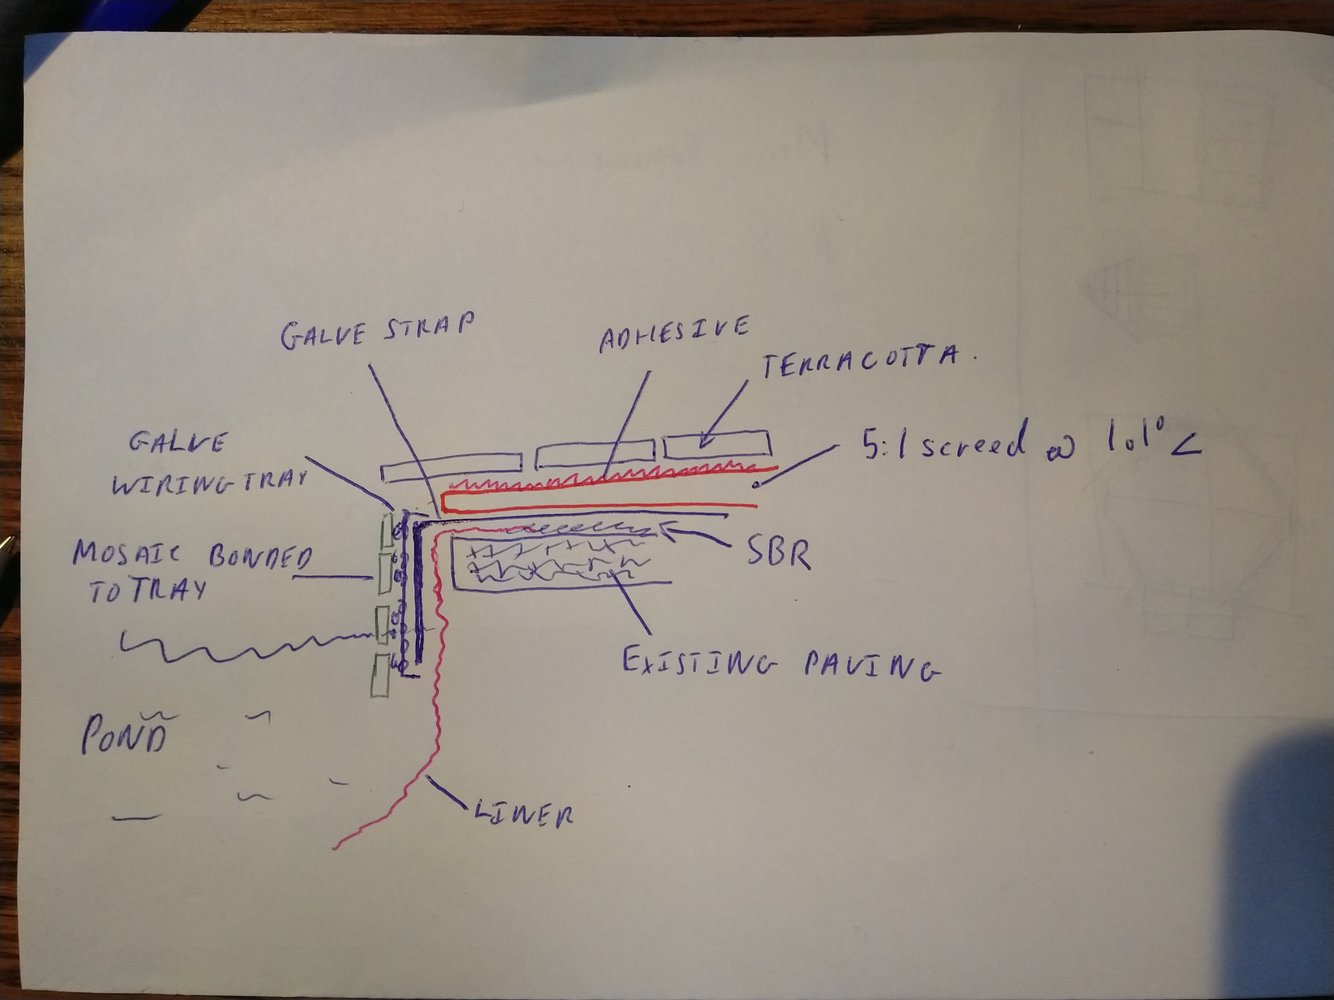 GALVE STRAP
ADHESIVE
TERRACOTTA.
GALVE
WIRING TRAY
5:1 screed @ 1.1° <
MOSAIC BONDED
TO TRAY
SBR
EXISTING PAVING
POND
LINER